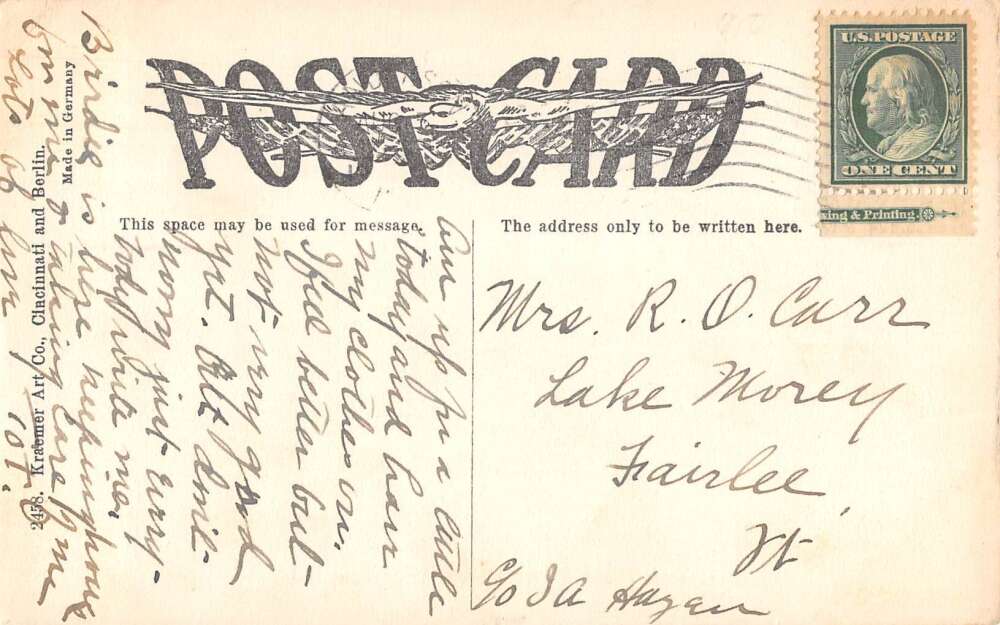 POST CARD
Made in Germany
2458. Kraemer Art Co., Cincinnati and Berlin.
This space may be used for message.
The address only to be written here.
U.S. POSTAGE
ONE CENT
ing & Printing.
Am up for a little
today and have
my clothes on.
I feel better but
not very good
yet.
just every-
body write me.
Birdie is here keeping house
for me & taking care of me
Lots of luv
Mrs. R. O. Carr
Lake Morey
Fairlee
Vt
c/o I A Hazen